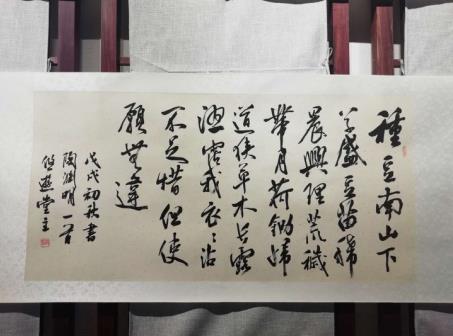 種豆南山下
草盛豆苗稀
晨興理荒穢
帶月荷鋤歸
道狹草木長露
沾我衣衣沾
不足惜但使
願無違
戊戌初秋書
陶淵明一首
悠然堂主